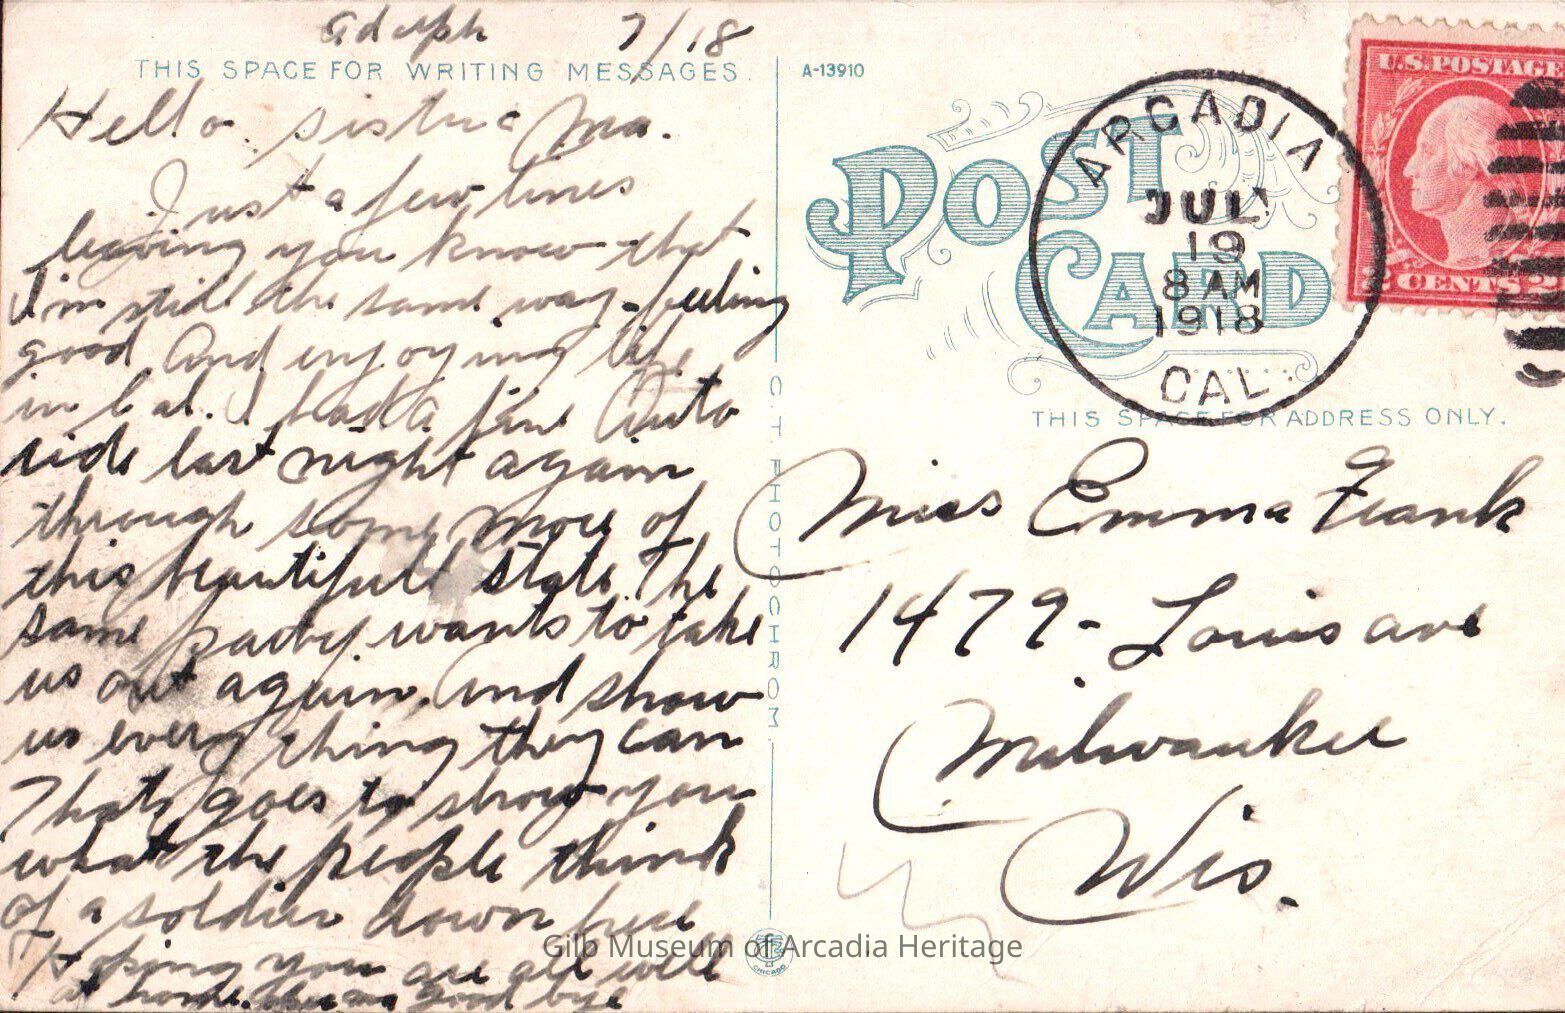 Adolph 7/18
THIS SPACE FOR WRITING MESSAGES.
Hello sister & Ma.
Just a few lines
leaving you know that
I'm still the same way - feeling
good And enjoying life
in Cal. I had a fine Auto
ride last night again
through some more of
this beautifull state. The
same party wants to take
us out again. And show
us every thing they can
Thats goes to show you
what the people think
of a soldier down here
Hoping you are all well
at home. good bye
CT. PHOTOCHROM
A-13910
POST CARD
ARCADIA
JUL
19
8 AM
1918
CAL.
U.S. POSTAGE
2 CENTS 2
THIS SPACE FOR ADDRESS ONLY.
Miss Emma Frank
1479 - Louis ave
Milwaukee
Wis.
CHICAGO
Gilb Museum of Arcadia Heritage